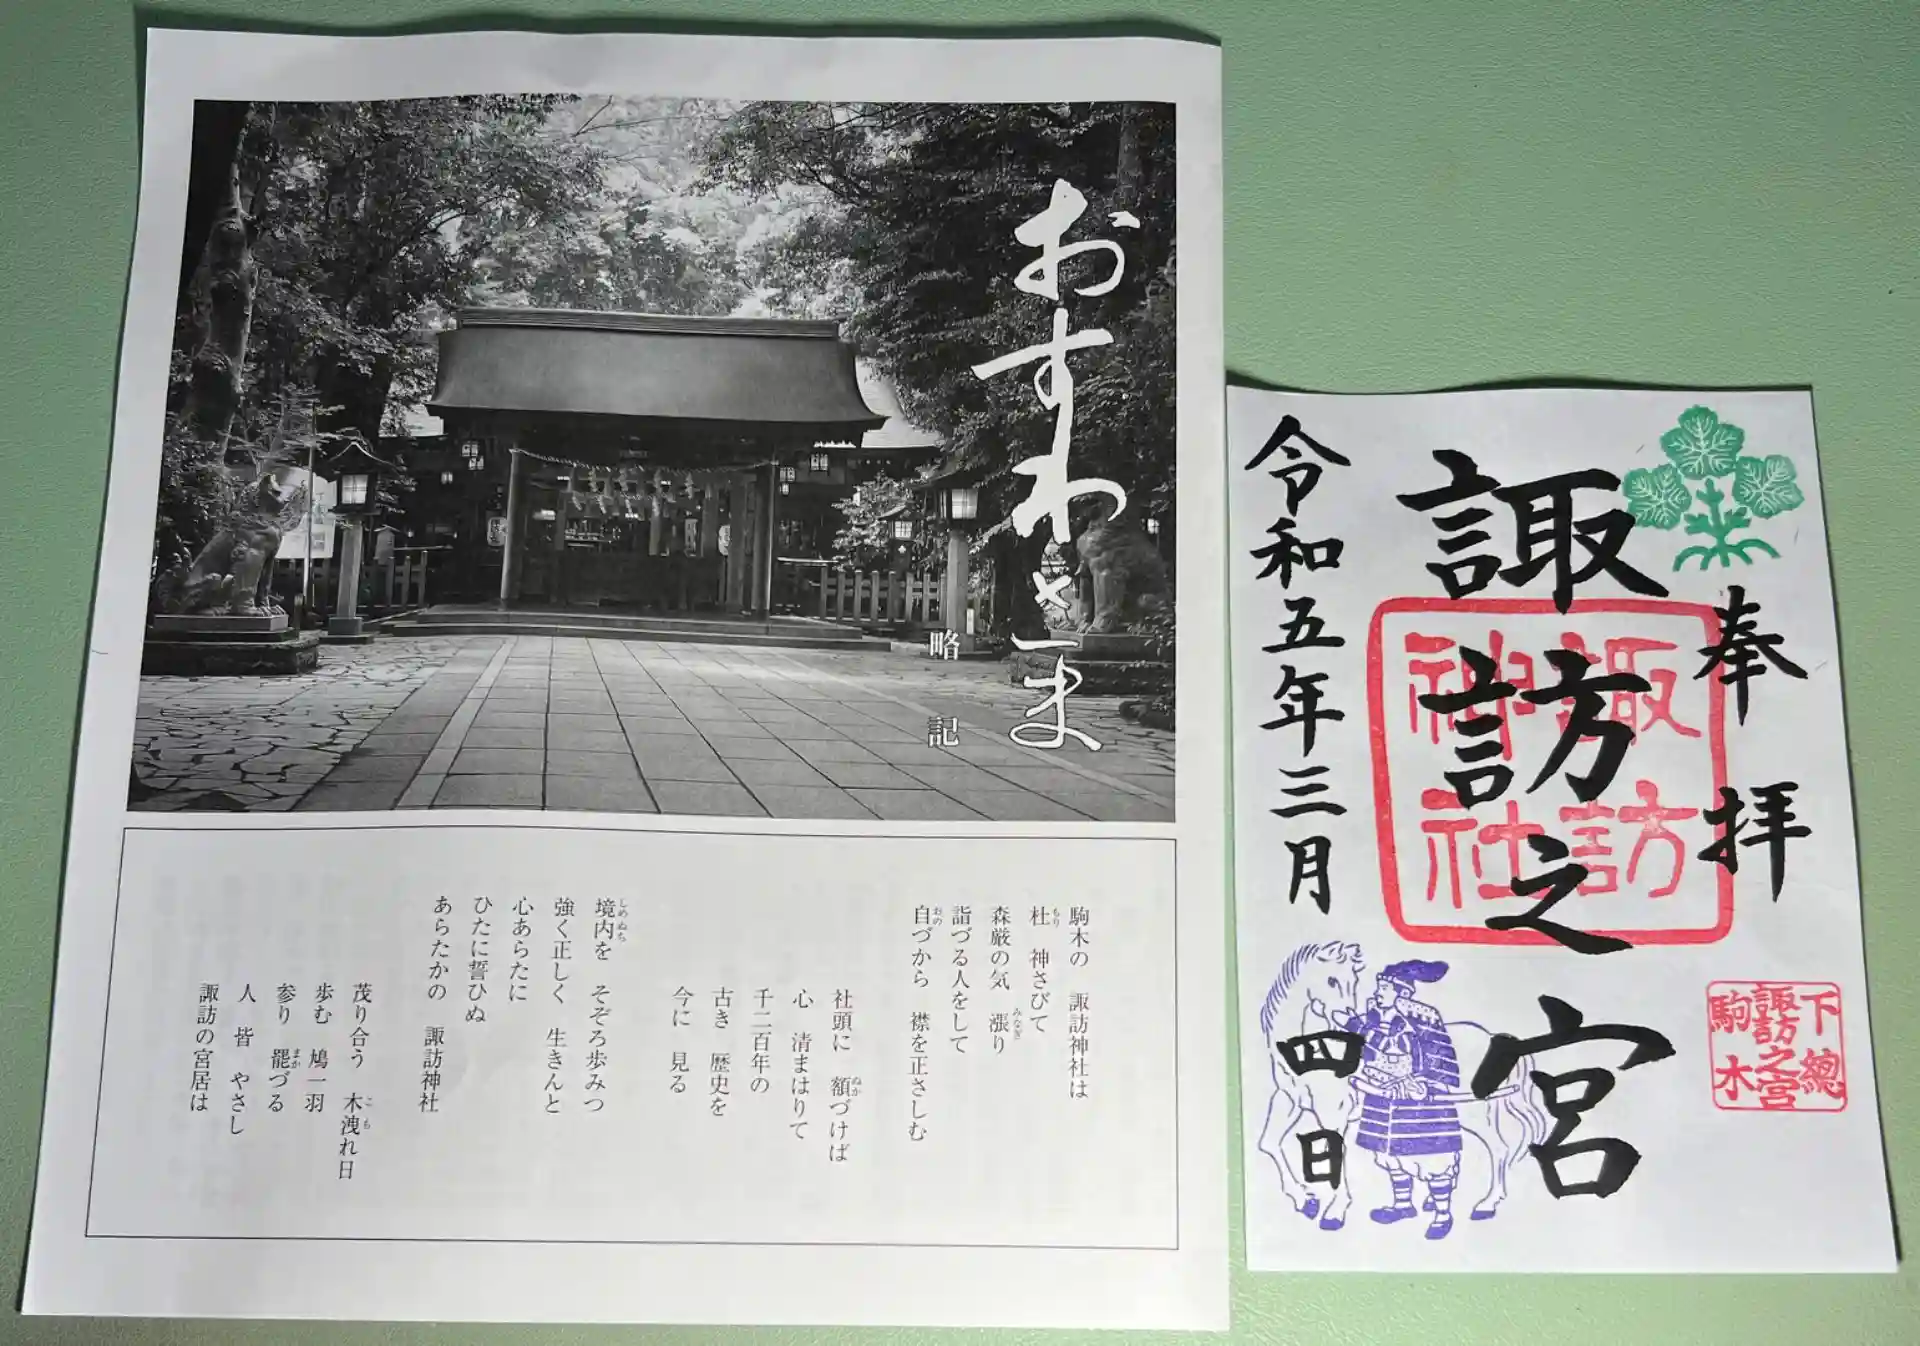 おすわさま
略記
駒木の　諏訪神社は
杜　神さびて
もり
森厳の気　漲り
みなぎ
詣づる人をして
自づから　襟を正さしむ
おの
社頭に　額づけば
ぬか
心　清まはりて
千二百年の
古き　歴史を
今に　見る
境内を　そぞろ歩みつ
しめぬち
強く正しく　生きんと
心あらたに
ひたに誓ひぬ
あらたかの　諏訪神社
茂り合う　木洩れ日
こも
歩む　鳩一羽
参り　罷づる
まか
人　皆　やさし
諏訪の宮居は
奉拝
諏訪之宮
諏訪
神社
下總
諏訪之宮
駒木
令和五年三月四日